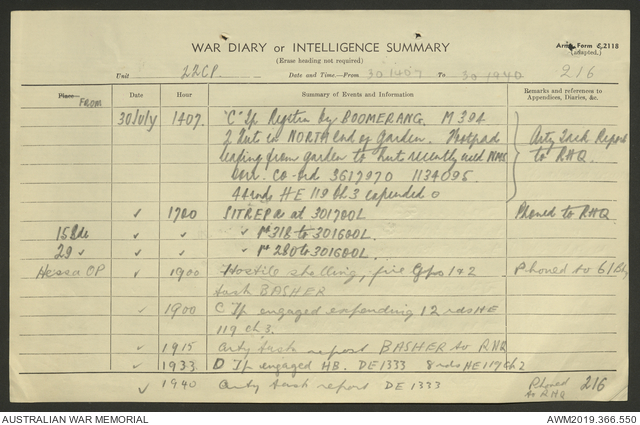 WAR DIARY or INTELLIGENCE SUMMARY
(Erase heading not required)
Army Form C.2118
(adapted.)
Unit 22CP. Date and Time—From 301407 To 301940 216
Place FROM Date Hour Summary of Events and Information Remarks and references to Appendices, Diaries, &c.
30 July 1407. "C" Tp Registra by BOOMERANG. M 394
2 Hut in NORTH end of Garden. Footpad Arty Task Report
leading from garden to hut recently used to RHQ.
Corr. Co-ord 3617970 1134095
44 rnds HE 119 Ch 3 expended
✓ 1700 SITREP as at 301700L Phoned to RHQ
15 Bde ✓ ✓ ✓ 318 to 301600L
29 ✓ ✓ ✓ ✓ 280 to 301600L
Hessa OP ✓ 1900 Hostile shelling, fire Gpo 1 & 2 Phoned to 6/Bty
task BASHER
✓ 1900 C Tp engaged expending 12 rds HE
119 ch 3.
✓ 1915 Arty task report BASHER to RHQ
✓ 1933 D Tp engaged HB. DE1333 8 rds HE 117 Ch 2
✓ 1940 Arty task report DE 1333 Phoned to RHQ 216
AUSTRALIAN WAR MEMORIAL AWM2019.366.550